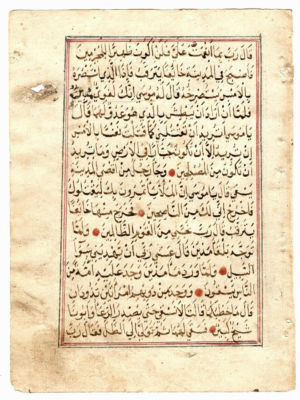 قَالَ رَبِّ بِمَا أَنْعَمْتَ عَلَيَّ فَلَنْ أَكُونَ ظَهِيرًا لِلْمُجْرِمِينَ
فَأَصْبَحَ فِي الْمَدِينَةِ خَائِفًا يَتَرَقَّبُ فَإِذَا الَّذِي اسْتَنْصَرَهُ
بِالْأَمْسِ يَسْتَصْرِخُهُ قَالَ لَهُ مُوسَى إِنَّكَ لَغَوِيٌّ مُبِينٌ
فَلَمَّا أَنْ أَرَادَ أَنْ يَبْطِشَ بِالَّذِي هُوَ عَدُوٌّ لَهُمَا قَالَ
يَا مُوسَى أَتُرِيدُ أَنْ تَقْتُلَنِي كَمَا قَتَلْتَ نَفْسًا بِالْأَمْسِ
إِنْ تُرِيدُ إِلَّا أَنْ تَكُونَ جَبَّارًا فِي الْأَرْضِ وَمَا تُرِيدُ
أَنْ تَكُونَ مِنَ الْمُصْلِحِينَ وَجَاءَ رَجُلٌ مِنْ أَقْصَى الْمَدِينَةِ
يَسْعَى قَالَ يَا مُوسَى إِنَّ الْمَلَأَ يَأْتَمِرُونَ بِكَ لِيَقْتُلُوكَ
فَاخْرُجْ إِنِّي لَكَ مِنَ النَّاصِحِينَ فَخَرَجَ مِنْهَا خَائِفًا
يَتَرَقَّبُ قَالَ رَبِّ نَجِّنِي مِنَ الْقَوْمِ الظَّالِمِينَ وَلَمَّا
تَوَجَّهَ تِلْقَاءَ مَدْيَنَ قَالَ عَسَى رَبِّي أَنْ يَهْدِيَنِي سَوَاءَ
السَّبِيلِ وَلَمَّا وَرَدَ مَاءَ مَدْيَنَ وَجَدَ عَلَيْهِ أُمَّةً مِنَ
النَّاسِ يَسْقُونَ وَوَجَدَ مِنْ دُونِهِمُ امْرَأَتَيْنِ تَذُودَانِ
قَالَ مَا خَطْبُكُمَا قَالَتَا لَا نَسْقِي حَتَّى يُصْدِرَ الرِّعَاءُ وَأَبُونَا
شَيْخٌ كَبِيرٌ فَسَقَى لَهُمَا ثُمَّ تَوَلَّى إِلَى الظِّلِّ فَقَالَ رَبِّ